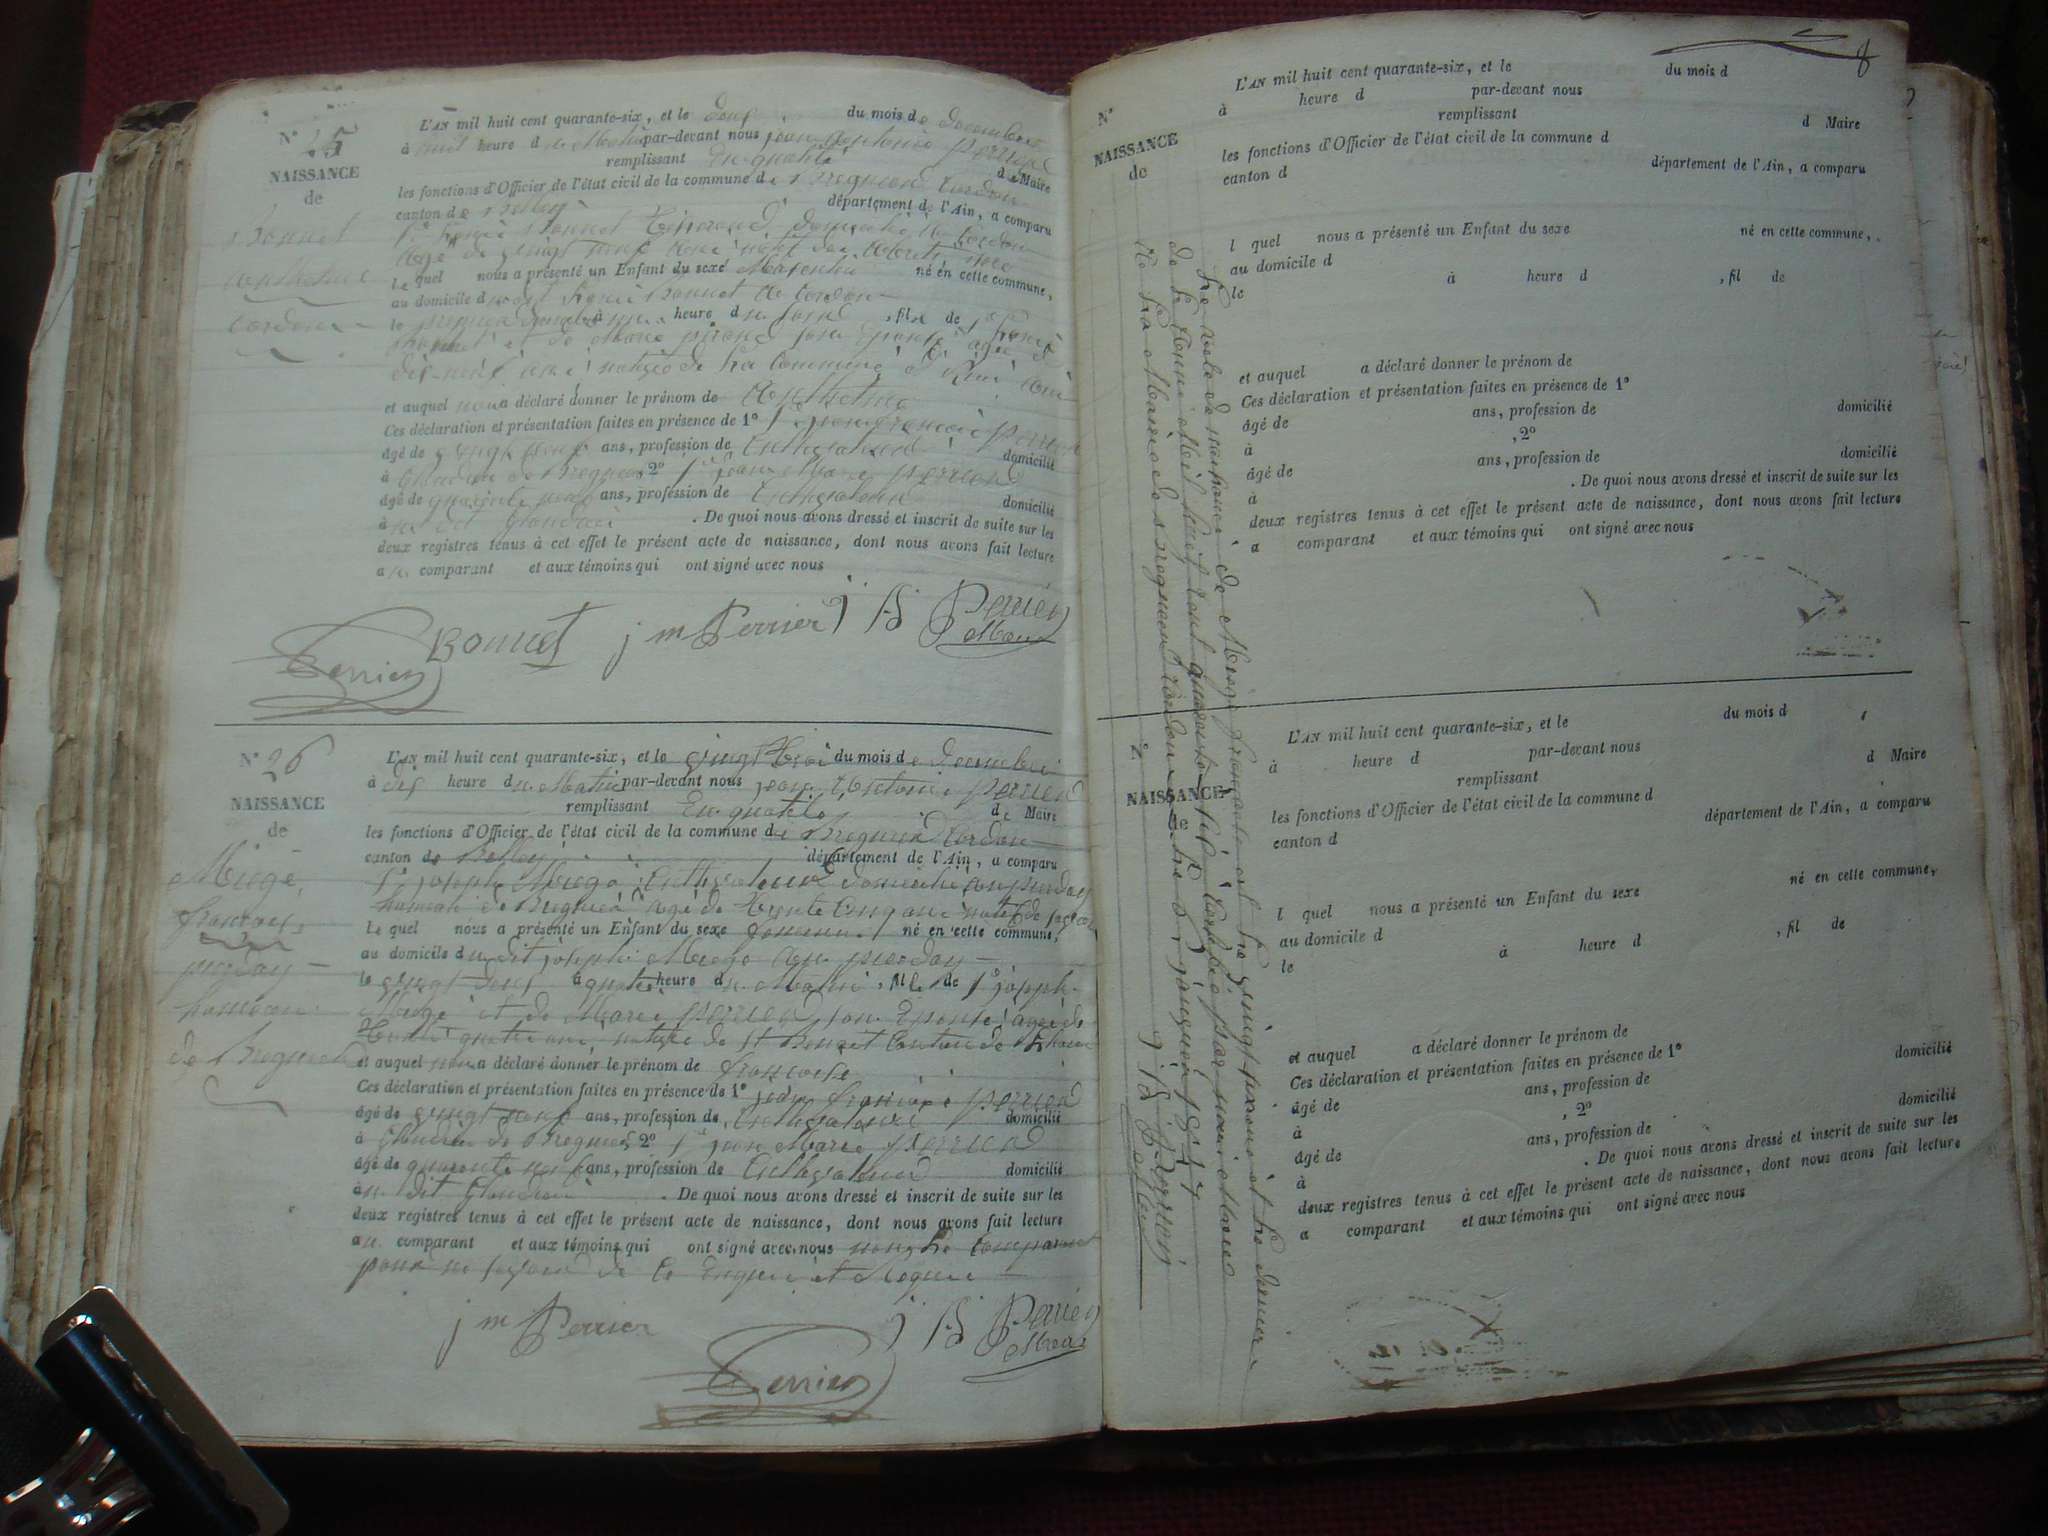 N° 25
NAISSANCE
de
Bonnet
anthelme
Cordon
L'AN mil huit cent quarante-six, et le deux du mois de Decembre
à huit heure du Matin par-devant nous jean Antoine Perrier
remplissant En qualité de Maire
les fonctions d'Officier de l'état civil de la commune de Bregnier Cordon
canton de Belley département de l'Ain, a comparu
Sr Bonnet domicilié à Cordon
agé de vingt neuf ans
Le quel nous a présenté un Enfant du sexe Masculin né en cette commune,
au domicile Bonnet de Cordon
le premier à heure du , fils de Sr
Bonnet et de Marie son Epouse agée de
dix-neuf ans native de la Commune d
et auquel nous a déclaré donner le prénom de Anthelme
Ces déclaration et présentation faites en présence de 1° Sr jean françois Perrier
âgé de vingt neuf ans, profession de Cultivateur domicilié
à Glandieu de Bregnier 2° Sr jean Marie Perrier
âgé de quarante neuf ans, profession de Cultivateur domicilié
à du dit Glandieu . De quoi nous avons dressé et inscrit de suite sur les
deux registres tenus à cet effet le présent acte de naissance, dont nous avons fait lecture
au comparant et aux témoins qui ont signé avec nous
Bonnet j m Perrier j A Perrier
Maire
Perrier
N° 26
NAISSANCE
de
Miege
françoise
hameau
de Bregnier
L'AN mil huit cent quarante-six, et le vingt trois du mois de Decembre
à dix heure du Matin par-devant nous jean Antoine Perrier
remplissant En qualité de Maire
les fonctions d'Officier de l'état civil de la commune de Bregnier Cordon
canton de Belley département de l'Ain, a comparu
Sr joseph Miege Cultivateur domicilié au
hameau de Bregnier agé de trente cinq ans natif de
Le quel nous a présenté un Enfant du sexe feminin né en cette commune,
au domicile du dit joseph Miege au
le vingt deux à quatre heure du Matin , fille de Sr joseph
Miege et de Marie Perrier son Epouse agée de
trente quatre ans native de St Benoit Canton de
et auquel nous a déclaré donner le prénom de françoise
Ces déclaration et présentation faites en présence de 1° jean françois Perrier
âgé de vingt neuf ans, profession de Cultivateur domicilié
à Glandieu de Bregnier 2° Sr jean Marie Perrier
âgé de quarante neuf ans, profession de Cultivateur domicilié
à du dit Glandieu . De quoi nous avons dressé et inscrit de suite sur les
deux registres tenus à cet effet le présent acte de naissance, dont nous avons fait lecture
au comparant et aux témoins qui ont signé avec nous non le comparant
pour ne savoir de ce Enquis et Requis
j m Perrier j A Perrier
Maire
Perrier
8
N°
NAISSANCE
de
L'AN mil huit cent quarante-six, et le du mois d
à heure d par-devant nous
remplissant d Maire
les fonctions d'Officier de l'état civil de la commune d
canton d département de l'Ain, a comparu
l quel nous a présenté un Enfant du sexe né en cette commune,
au domicile d
le à heure d , fil de
et auquel a déclaré donner le prénom de
Ces déclaration et présentation faites en présence de 1°
âgé de ans, profession de domicilié
à , 2°
âgé de ans, profession de domicilié
à . De quoi nous avons dressé et inscrit de suite sur les
deux registres tenus à cet effet le présent acte de naissance, dont nous avons fait lecture
a comparant et aux témoins qui ont signé avec nous
N°
NAISSANCE
de
L'AN mil huit cent quarante-six, et le du mois d
à heure d par-devant nous
remplissant d Maire
les fonctions d'Officier de l'état civil de la commune d
canton d département de l'Ain, a comparu
l quel nous a présenté un Enfant du sexe né en cette commune,
au domicile d
le à heure d , fil de
et auquel a déclaré donner le prénom de
Ces déclaration et présentation faites en présence de 1°
âgé de ans, profession de domicilié
à , 2°
âgé de ans, profession de domicilié
à . De quoi nous avons dressé et inscrit de suite sur les
deux registres tenus à cet effet le présent acte de naissance, dont nous avons fait lecture
a comparant et aux témoins qui ont signé avec nous
Le acte de naissance de Miege françoise est le vingt sixieme et le dernier
de l'année Mil huit cent quarante six Certifié par nous Maire
A la Mairie de Bregnier Cordon le 1er janvier 1847
j A Perrier